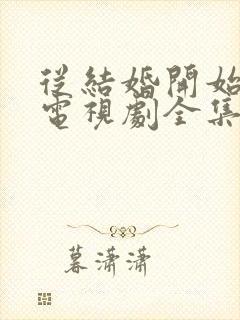 從結婚開始
電視劇全集
暮瀟瀟